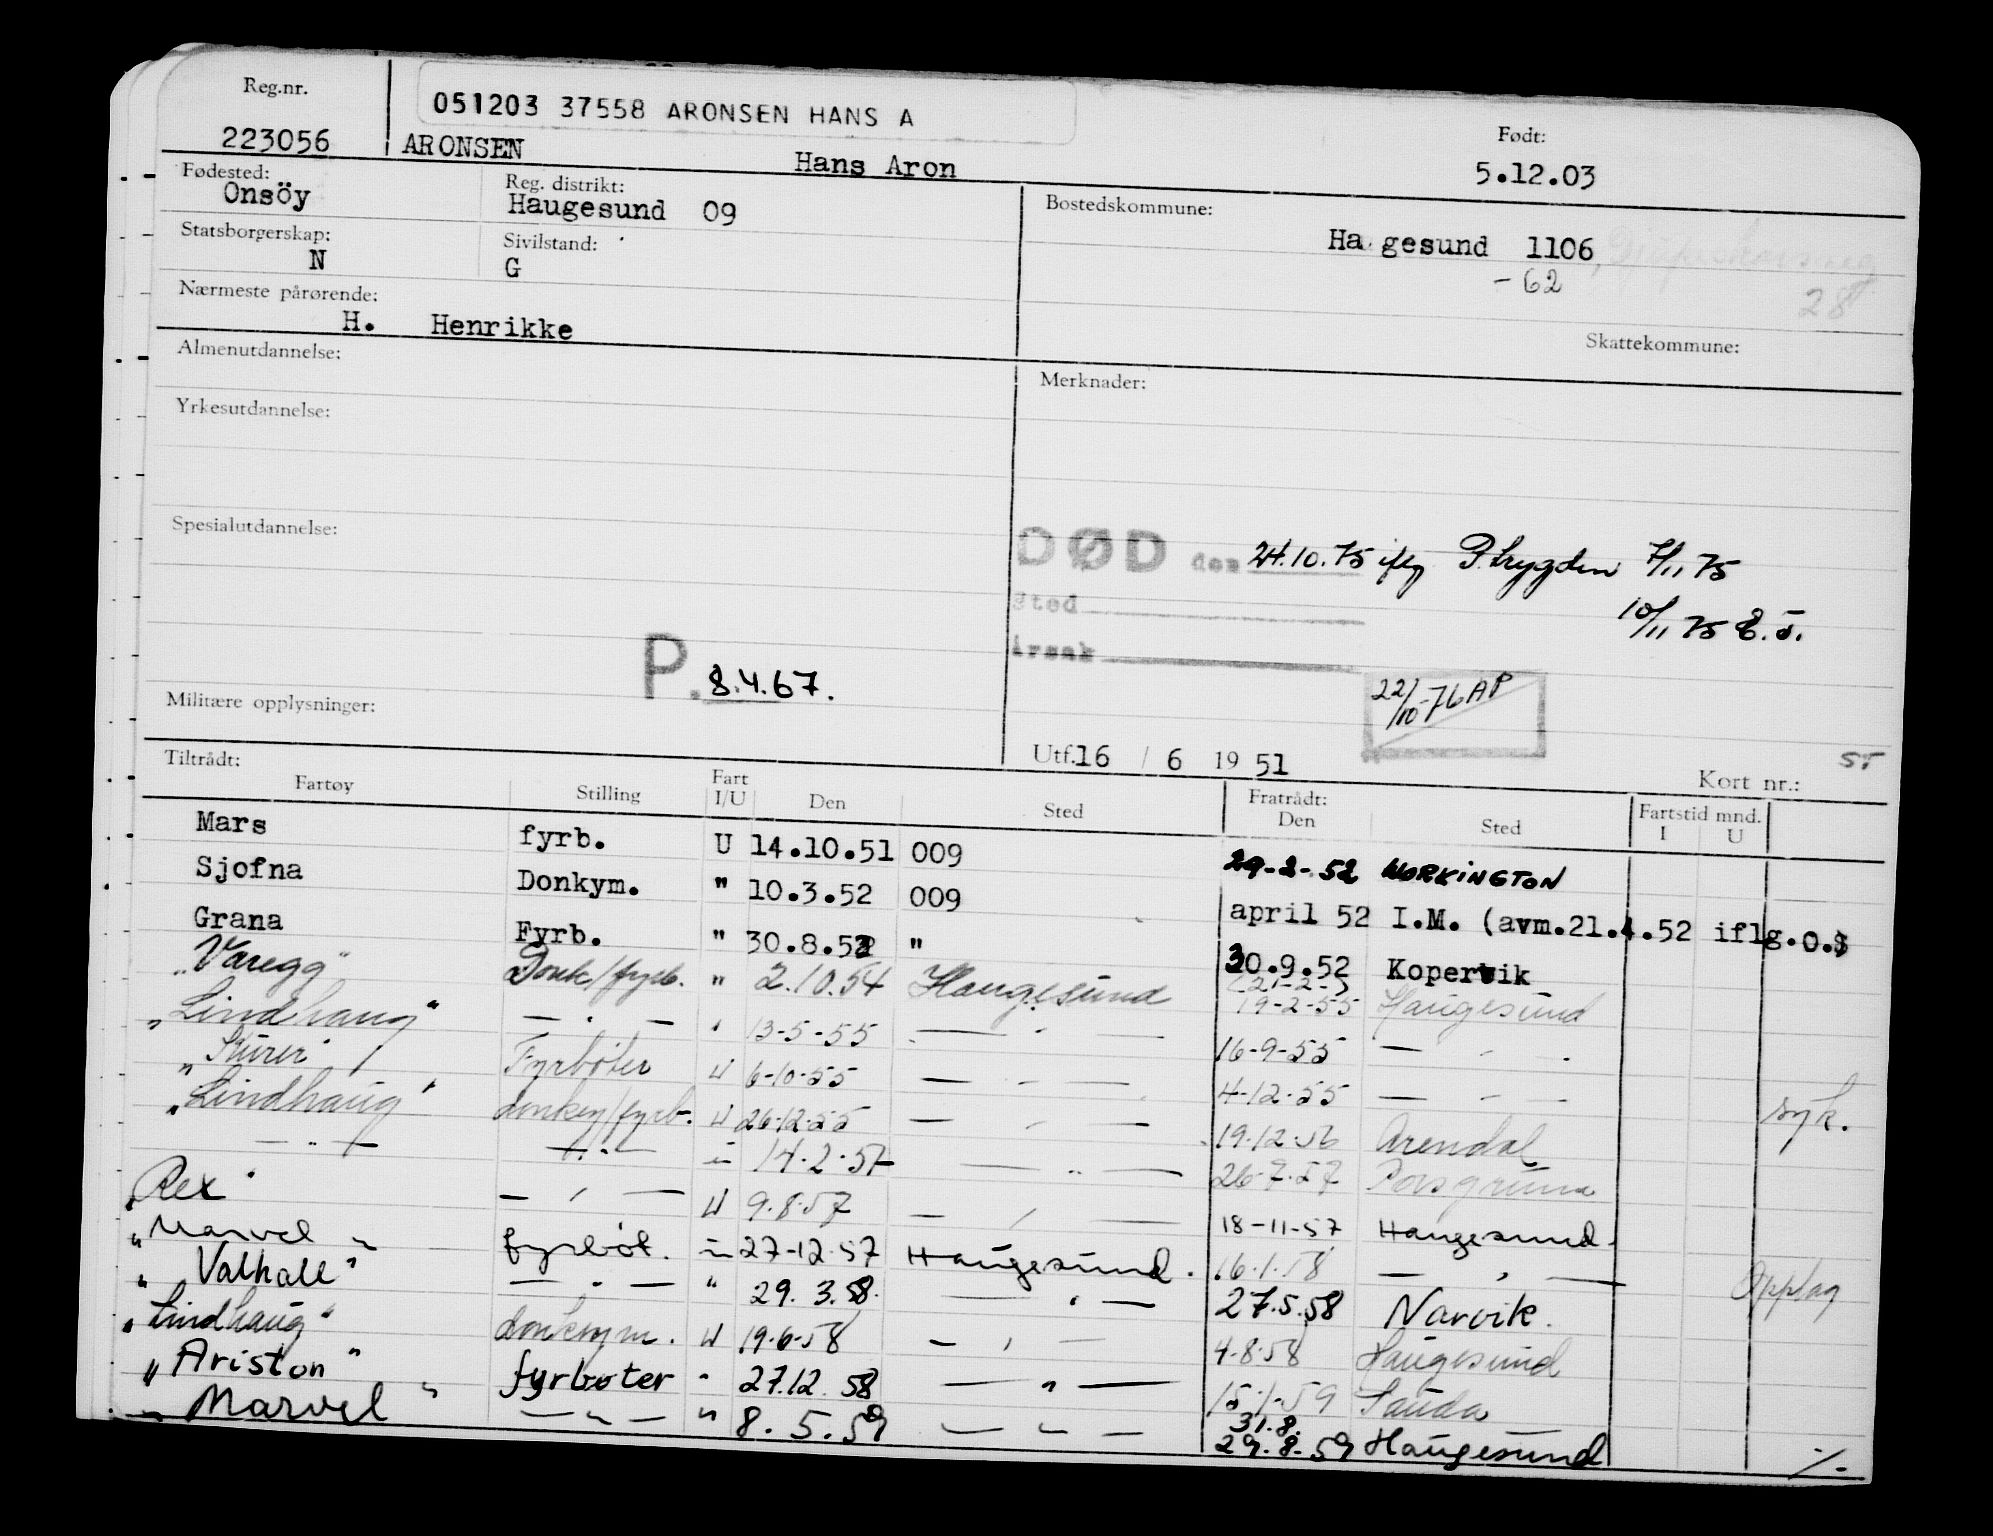 Reg.nr.
223056
051203 37558 ARONSEN HANS A
ARONSEN Hans Aron
Født:
5.12.03
Fødested:
Onsöy
Reg. distrikt:
Haugesund 09
Bostedskommune:
Ha gesund 1106,
-62
28
Statsborgerskap:
N
Sivilstand:
G
Nærmeste pårørende:
H. Henrikke
Skattekommune:
Almenutdannelse:
Merknader:
Yrkesutdannelse:
Spesialutdannelse:
DØD den 24.10.75 iflg P.trygden 7/11 75
Sted
10/11 75
Årsak
P. 8.4.67.
22/10-76 AP
Militære opplysninger:
Utf. 16 / 6 19 51
Kort nr.:
Tiltrådt:
Fartøy Stilling Fart I/U Den Sted Fratrådt: Den Sted Fartstid mnd. I U
Mars fyrb. U 14.10.51 009 29-2-52 WORKINGTON
Sjofna Donkym. " 10.3.52 009 april 52 I.M. (avm.21.4.52 iflg.O.S
Grana Fyrb. " 30.8.52 " 30.9.52 Kopervik
"Varegg" Donk/fyrb. " 2.10.54 Haugesund 19-2-55 Haugesund
"Lindhaug" — " — " 13-5-55 — " — 16-9-55 — " —
"Kurer" Fyrbøter U 6-10-55 — " — 4-12-55 — " — syk.
"Lindhaug" donkey/fyrb. U 26-12-55 — " — 19-12-56 Arendal
— " — — " — " 14-2-57 — " — 26-7-57 Porsgrunn
"Rex" — " — U 9.8.57 — " — 18-11-57 Haugesund.
"Marvel" fyrbøt. " 27-12-57 Haugesund. 16.1.58 — " — Opplag
"Valhall" — " — " 29.3.58. — " — 27.5.58 Narvik.
"Lindhaug" donkeym. U 19-6-58 — " — 4-8-58 Haugesund
"Ariston" fyrbøter " 27.12.58 — " — 15-1-59 Sauda
"Marvel" — " — " 8.5.59 — " — 31.8.
29.8.59 Haugesund ./.